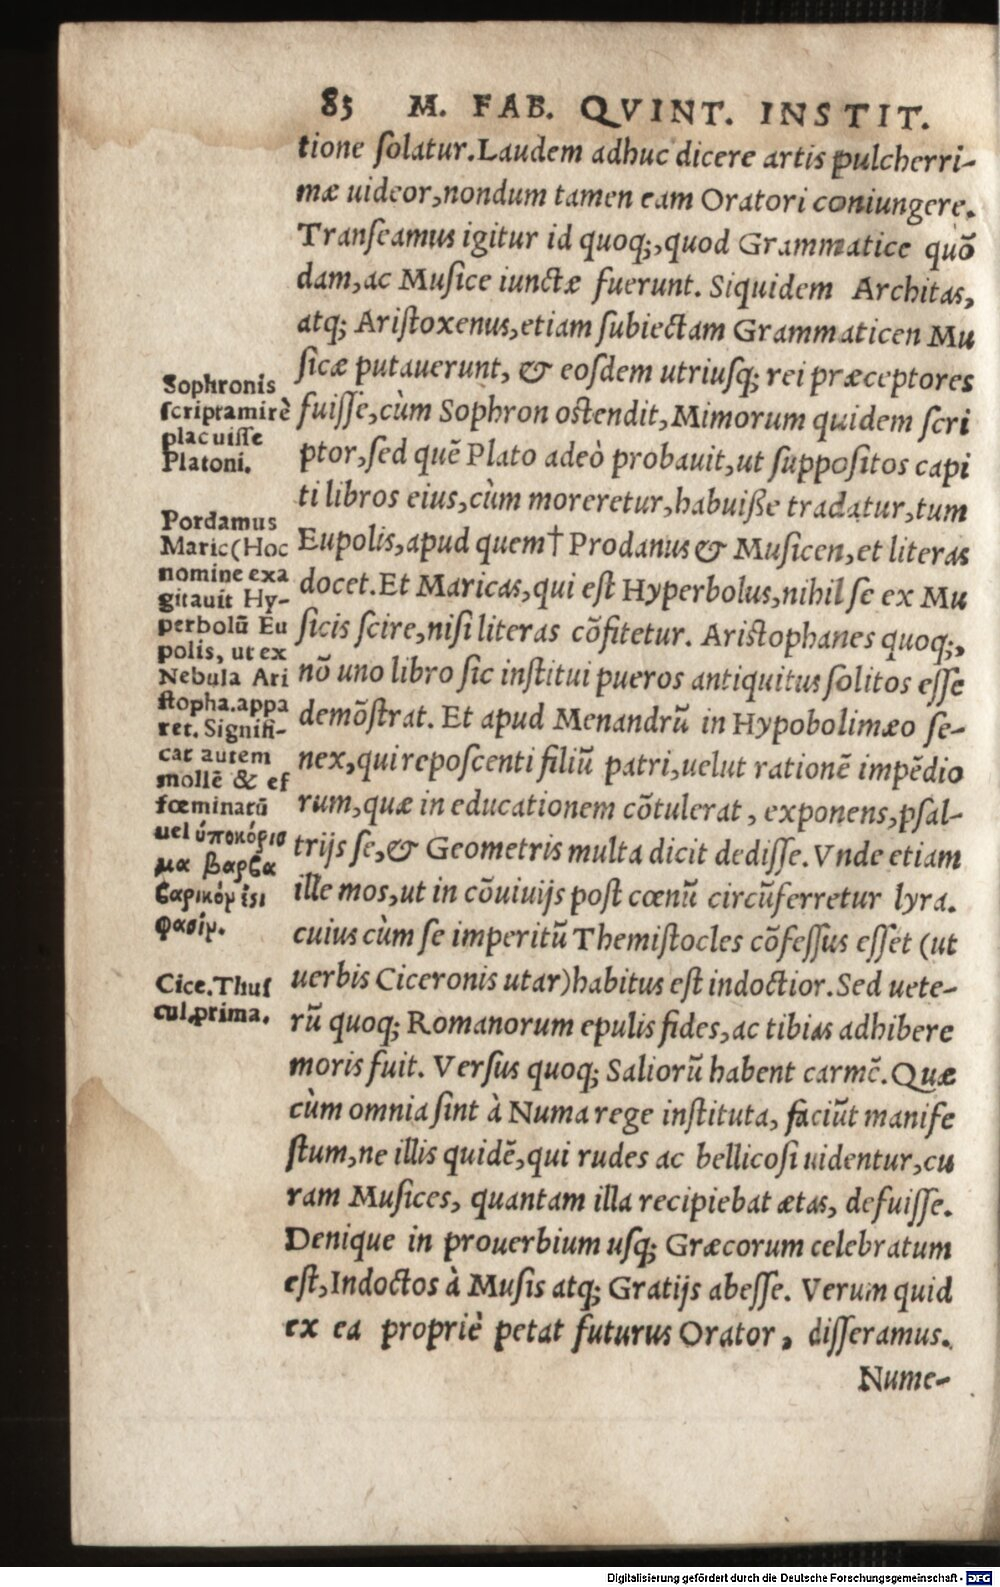 85 M. FAB. QVINT. INSTIT.
tione ſolatur. Laudem adhuc dicere artis pulcherri-
mæ uideor, nondum tamen eam Oratori coniungere.
Tranſeamus igitur id quoq;, quod Grammatice quõ
dam, ac Muſice iunctæ fuerunt. Siquidem Architas,
atq; Ariſtoxenus, etiam ſubiectam Grammaticen Mu
ſicæ putauerunt, & eoſdem utriuſq; rei præceptores
fuiſſe, cùm Sophron oſtendit, Mimorum quidem ſcri
ptor, ſed quẽ Plato adeò probauit, ut ſuppoſitos capi
ti libros eius, cùm moreretur, habuiße tradatur, tum
Eupolis, apud quem† Prodanus & Muſicen, et literas
docet. Et Maricas, qui eſt Hyperbolus, nihil ſe ex Mu
ſicis ſcire, niſi literas cõfitetur. Ariſtophanes quoq;,
nõ uno libro ſic inſtitui pueros antiquitus ſolitos eſſe
demõſtrat. Et apud Menandrũ in Hypobolimæo ſe-
nex, qui repoſcenti filiũ patri, uelut rationẽ impẽdio
rum, quæ in educationem cõtulerat, exponens, pſal-
trijs ſe, & Geometris multa dicit dediſſe. Vnde etiam
ille mos, ut in cõuiuijs poſt cœnũ circũferretur lyra.
cuius cùm ſe imperitũ Themiſtocles cõfeſſus eſſet (ut
uerbis Ciceronis utar) habitus eſt indoctior. Sed uete-
rũ quoq; Romanorum epulis fides, ac tibias adhibere
moris fuit. Verſus quoq; Saliorũ habent carmẽ. Quæ
cùm omnia ſint à Numa rege inſtituta, faciũt manife
ſtum, ne illis quidẽ, qui rudes ac bellicoſi uidentur, cu
ram Muſices, quantam illa recipiebat ætas, defuiſſe.
Denique in prouerbium uſq; Græcorum celebratum
eſt, Indoctos à Muſis atq; Gratijs abeſſe. Verum quid
ex ea propriè petat futurus Orator, diſſeramus.
Nume-
Sophronis
ſcripta mirè
placuiſſe
Platoni.
Pordamus
Maric (Hoc
nomine exa
gitauit Hy-
perbolũ Eu
polis, ut ex
Nebula Ari
ſtopha. appa
ret. Signifi-
cat autem
mollẽ & ef
fœminatũ
uel ὑποκόρισ
μα βαρβα
βαρικόν ἐϛι
φασίν.
Cice. Thuſ
cul. prima.
Digitalisierung gefördert durch die Deutsche Forschungsgemeinschaft - DFG